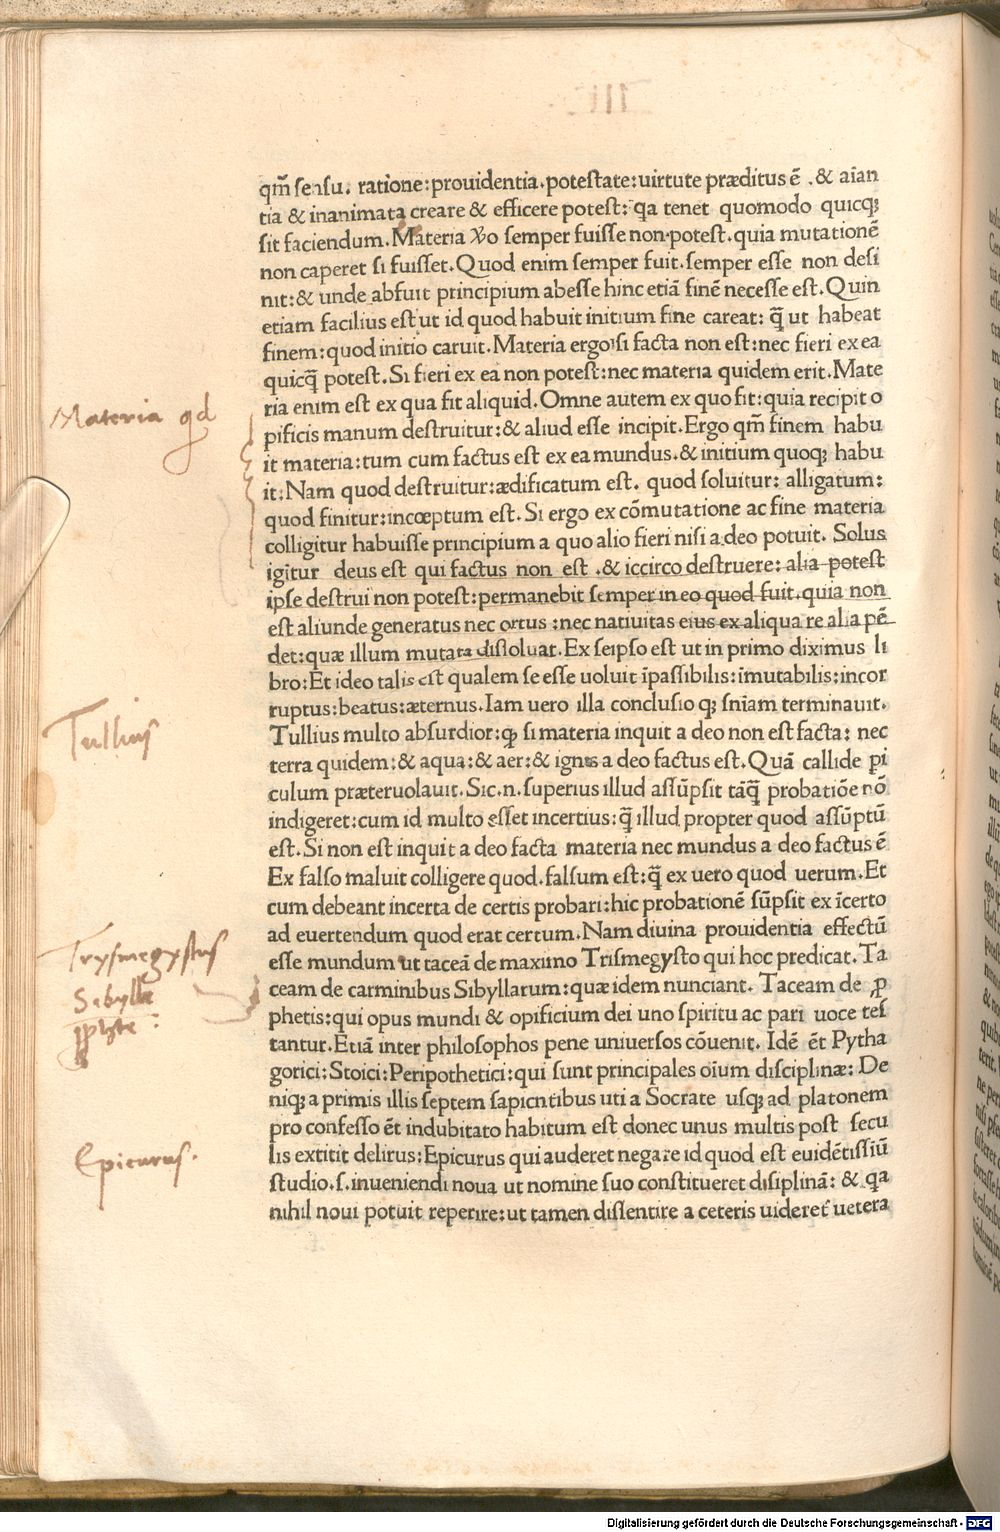 qm̃ sensu. ratione:prouidentia.potestate:uirtute præditus ẽ .& aĩan
tia & inanimata creare & efficere potest: qa tenet quomodo quicqꝫ
sit faciendum. Materia ꝟo semper fuisse non potest. quia mutationẽ
non caperet si fuisset. Quod enim semper fuit.semper esse non desi
nit:& unde abfuit principium abesse hinc etiã finẽ necesse est. Quin
etiam facilius est ut id quod habuit initium fine careat: q̃ ut habeat
finem:quod initio caruit. Materia ergo si facta non est:nec fieri ex ea
quicq̃ potest. Si fieri ex ea non potest:nec materia quidem erit. Mate
Materia qd
ria enim est ex qua fit aliquid. Omne autem ex quo fit:quia recipit o
pificis manum destruitur:& aliud esse incipit. Ergo qm̃ finem habu
it materia:tum cum factus est ex ea mundus.& initium quoqꝫ habu
it: Nam quod destruitur:ædificatum est. quod soluitur: alligatum:
quod finitur:incœptum est. Si ergo ex cõmutatione ac fine materia
colligitur habuisse principium a quo alio fieri nisi a deo potuit. Solus
igitur deus est qui factus non est .& iccirco destruere: alia potest
ipse destrui non potest:permanebit semper in eo quod fuit.quia non
est aliunde generatus nec ortus :nec natiuitas eius ex aliqua re alia pẽ
det:quæ illum mutata dissoluat. Ex seipso est ut in primo diximus li
bro: Et ideo talis est qualem se esse uoluit ĩpassibilis:ĩmutabilis:incor
ruptus:beatus:æternus. Iam uero illa conclusio qꝫ sñiam terminauit.
Tullius
Tullius multo absurdior:ꝙ si materia inquit a deo non est facta: nec
terra quidem:& aqua:& aer:& ignis a deo factus est. Quã callide pi
culum præteruolauit. Sic.n. superius illud assũpsit tãq̃ probatiõe nõ
indigeret:cum id multo esset incertius:q̃ illud propter quod assũptũ
est. Si non est inquit a deo facta materia nec mundus a deo factus ẽ
Ex falso maluit colligere quod.falsum est:q̃ ex uero quod uerum. Et
cum debeant incerta de certis probari:hic probationẽ sũpsit ex ĩcerto
ad euertendum quod erat certum. Nam diuina prouidentia effectũ
Trysmegystus
esse mundum ut taceã de maximo Trismegysto qui hoc predicat. Ta
Sibyllæ
ceam de carminibus Sibyllarum:quæ idem nunciant. Taceam de ꝓ
phetis:qui opus mundi & opificium dei uno spiritu ac pari uoce tes
tantur. Etiã inter philosophos pene uniuersos cõuenit. Idẽ ẽt Pytha
gorici: Stoici: Peripothetici:qui sunt principales oĩum disciplinæ: De
niqꝫ a primis illis septem sapientibus uti a Socrate usqꝫ ad platonem
pro confesso ẽt indubitato habitum est donec unus multis post secu
Epicurus.
lis extitit delirus: Epicurus qui auderet negare id quod est euidẽtissiũ
studio.s.inueniendi noua ut nomine suo constitueret disiplinã: & qa
nihil noui potuit reperire:ut tamen dissentire a ceteris uideret̃ uetera
Digitalisierung gefördert durch die Deutsche Forschungsgemeinschaft - DFG